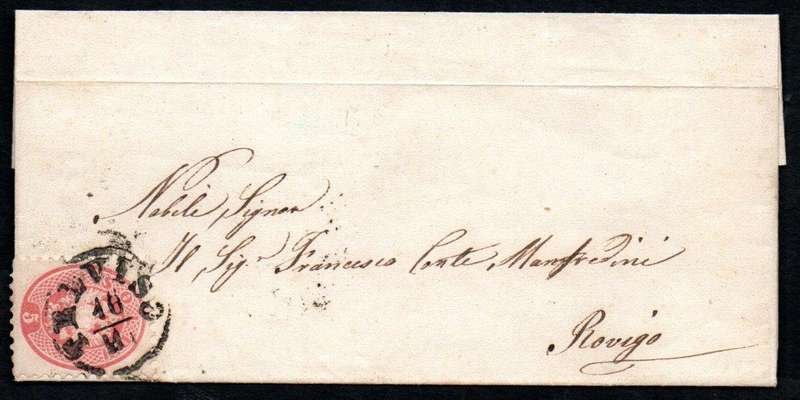 Nobile Signor
Il Sig.r Francesco Conte Manfredini
Rovigo
TREVISO
16
5